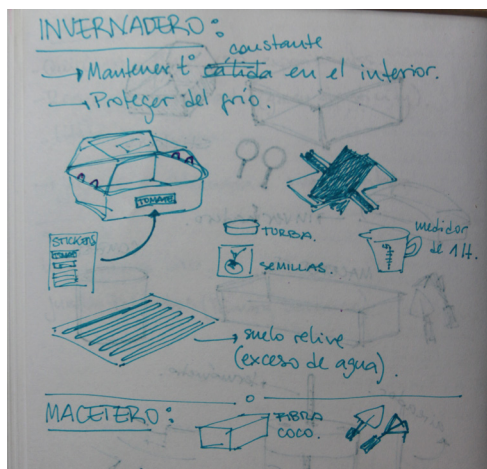 INVERNADERO:
constante
→ Mantener tº cálida en el interior.
→ Proteger del frío.
TOMATE
STICKERS
TOMATE
TURBA.
SEMILLAS.
medidor
de 1 lt.
→ suelo relive
(exceso de agua).
MACETERO:
FIBRA
COCO.